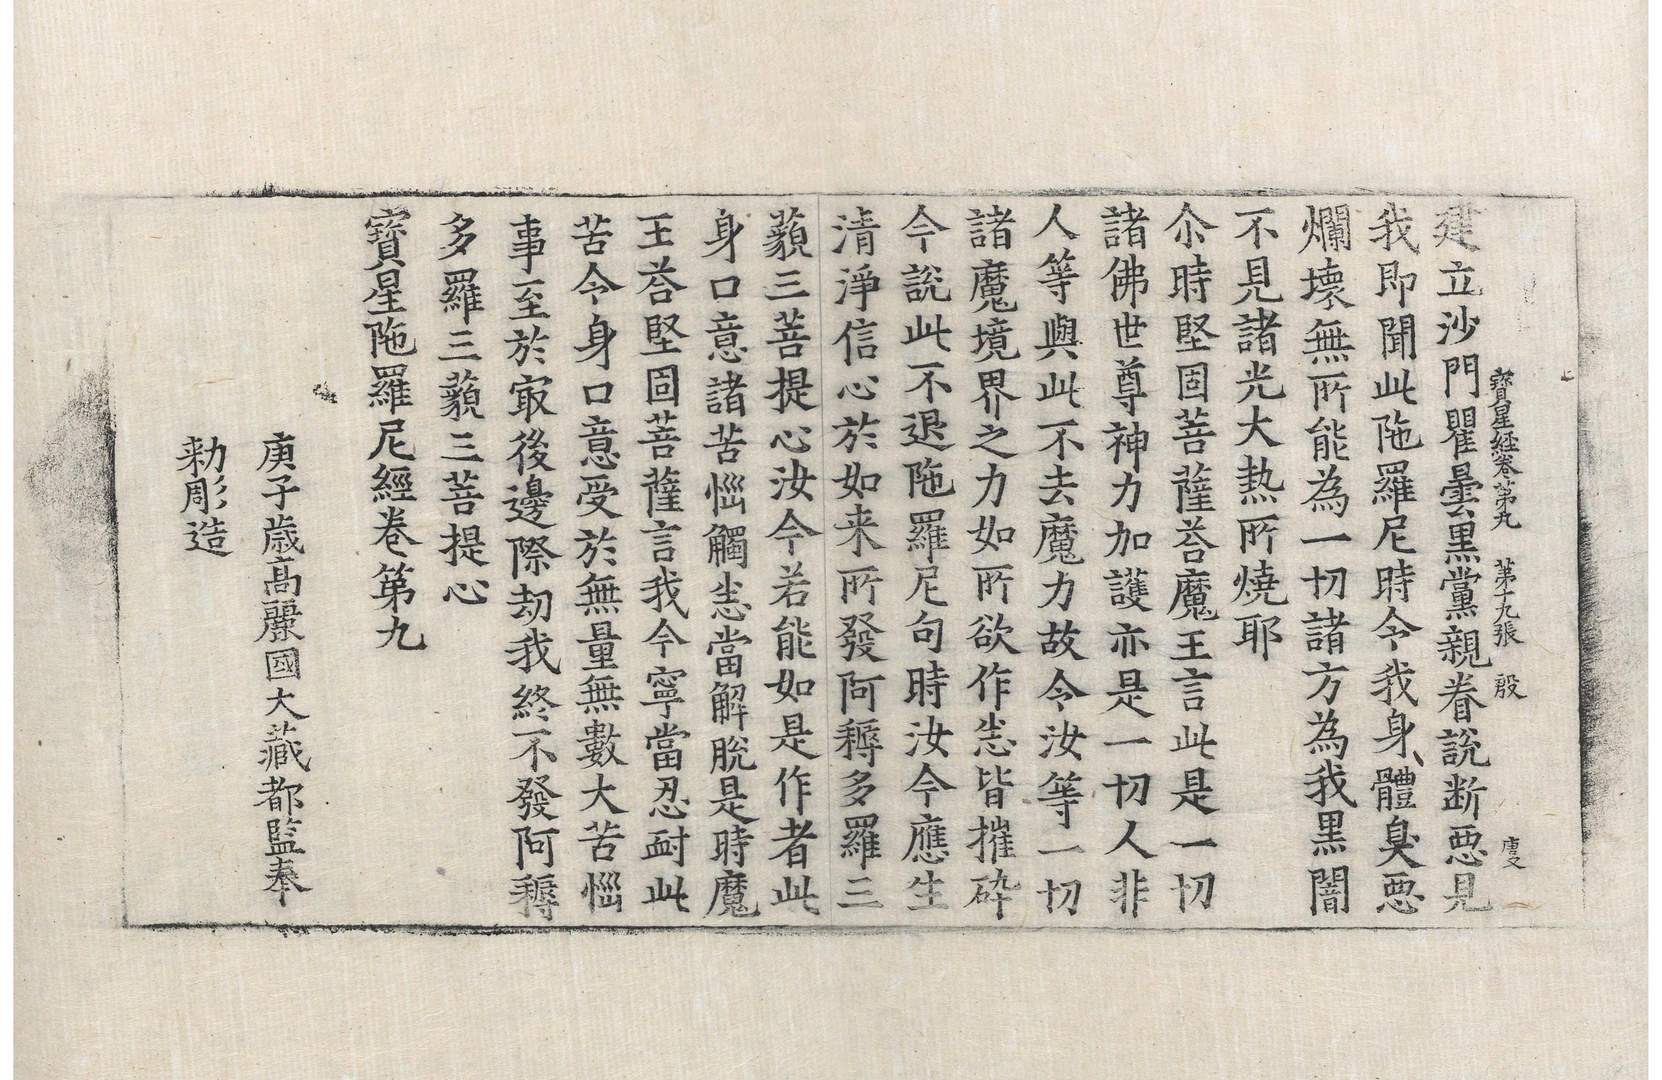 寶星經卷第九　第十九張　殷
建立沙門瞿曇黒黨親眷說断惡見
我即聞此陁羅尼時今我身體臭惡
爛壞無所能為一切諸方為我黒闇
不見諸光大熱所燒耶
尒時堅固菩薩荅魔王言此是一切
諸佛世尊神力加護亦是一切人非
人等與此不去魔力故令汝等一切
諸魔境界之力如所欲作恙皆摧碎
今說此不退陁羅尼句時汝今應生
清淨信心於如来所發阿耨多羅三
藐三菩提心汝今若能如是作者此
身口意諸苦惱觸恙當解脫是時魔
王荅堅固菩薩言我今寧當忍耐此
苦令身口意受於無量無數大苦惱
事至於㝡後邊際劫我終不發阿耨
多羅三藐三菩提心
寶星陁羅尼經卷第九
庚子歳高麗國大藏都監奉
勑彫造